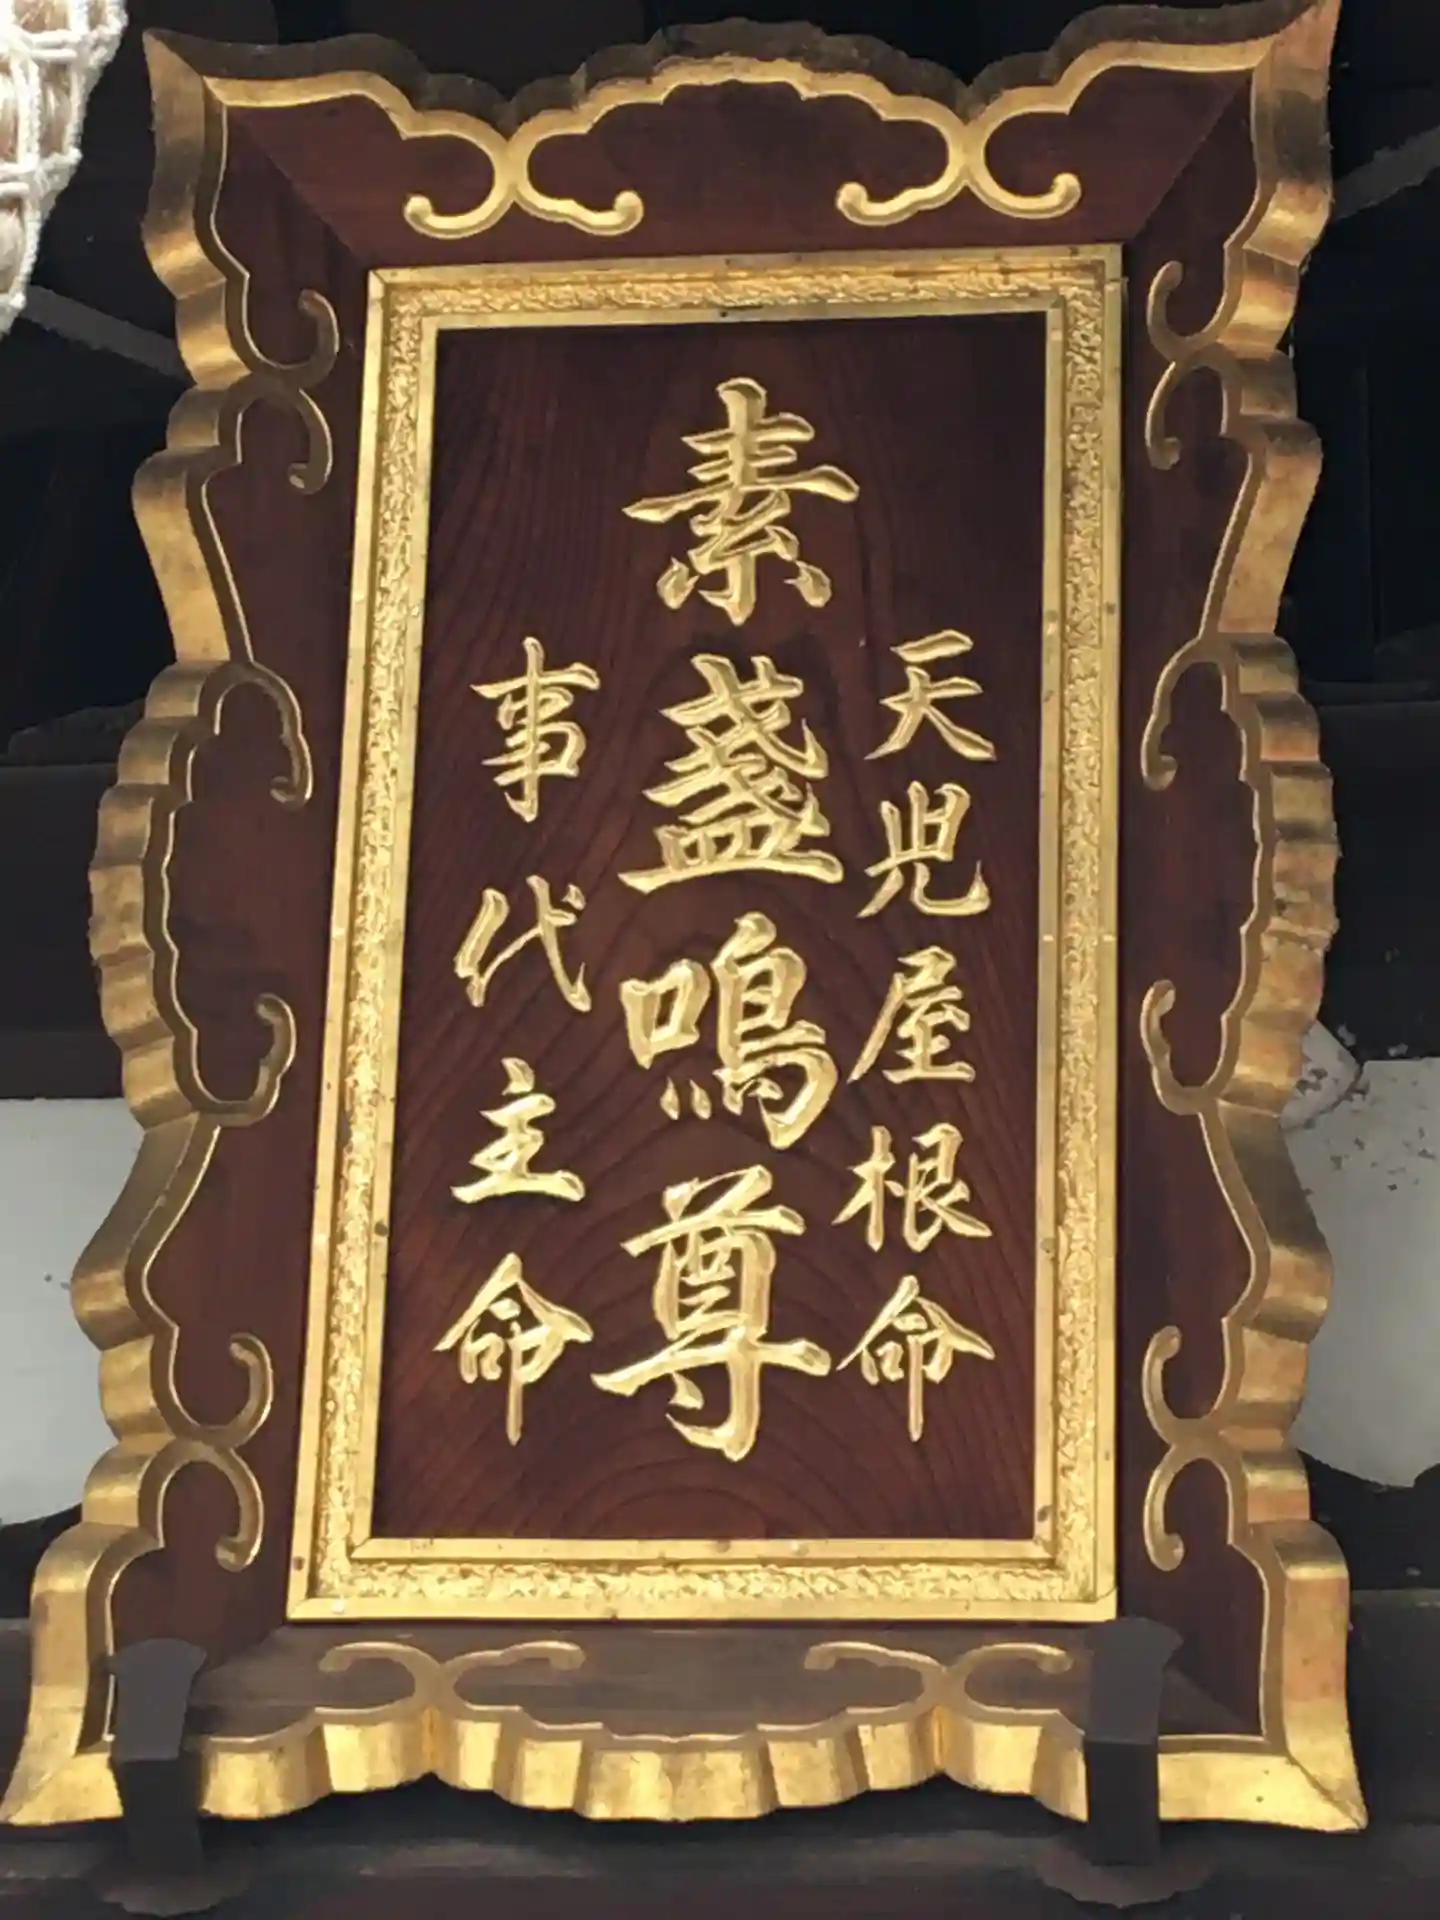 天兒屋根命
素盞鳴尊
事代主命